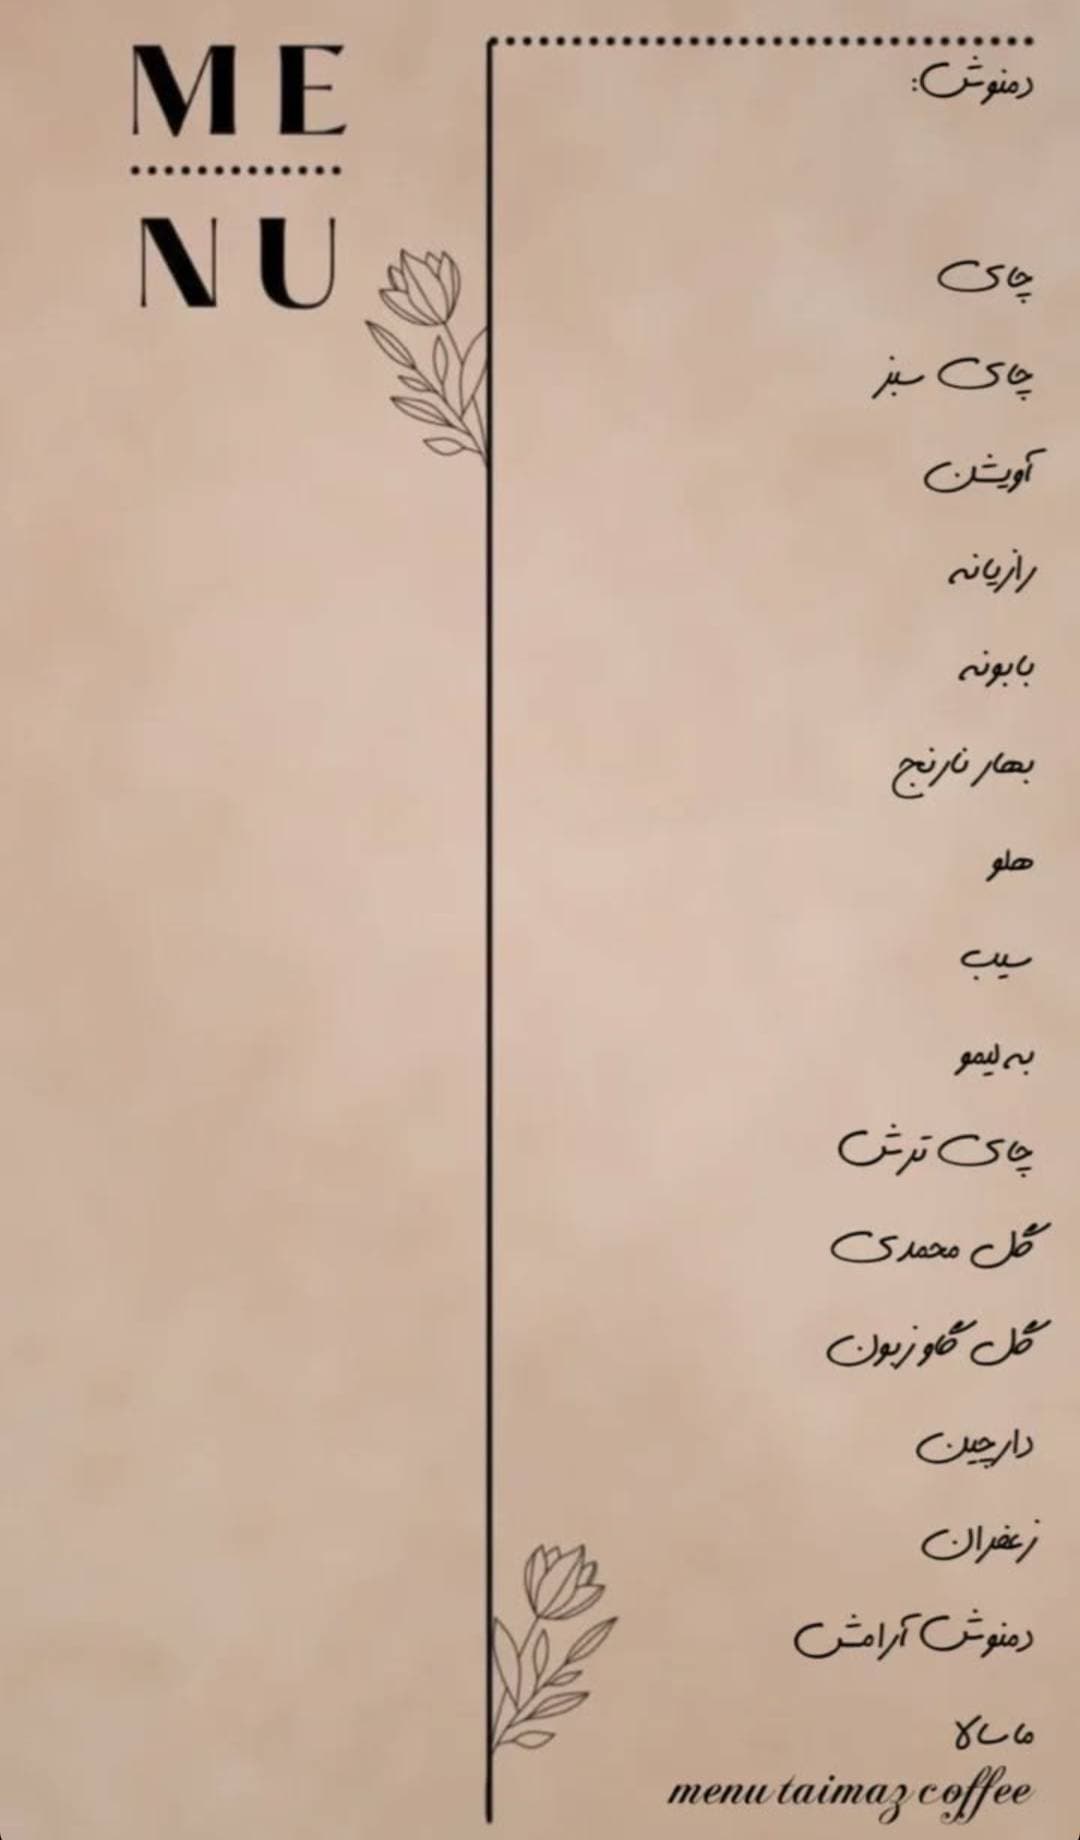 ME
NU
دمنوش:
چای
چای سبز
آویشن
رازیانه
بابونه
بهار نارنج
هلو
سیب
به لیمو
چای ترش
گل محمدی
گل گاو زبون
دارچین
زعفران
دمنوش آرامش
ماسالا
menu taimaz coffee